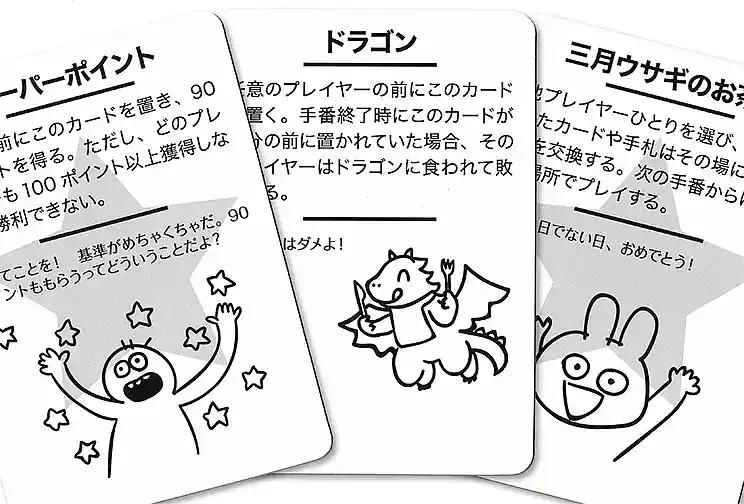 ーパーポイント
前にこのカードを置き、90
トを得る。ただし、どのプレ
も100ポイント以上獲得しな
勝利できない。
てことを！　基準がめちゃくちゃだ。90
イントももらうってどういうことだよ？
ドラゴン
意のプレイヤーの前にこのカード
置く。手番終了時にこのカードが
分の前に置かれていた場合、その
イヤーはドラゴンに食われて敗
る。
はダメよ！
三月ウサギのお
プレイヤーひとりを選び、
たカードや手札はその場に
を交換する。次の手番から
場所でプレイする。
日でない日、おめでとう！